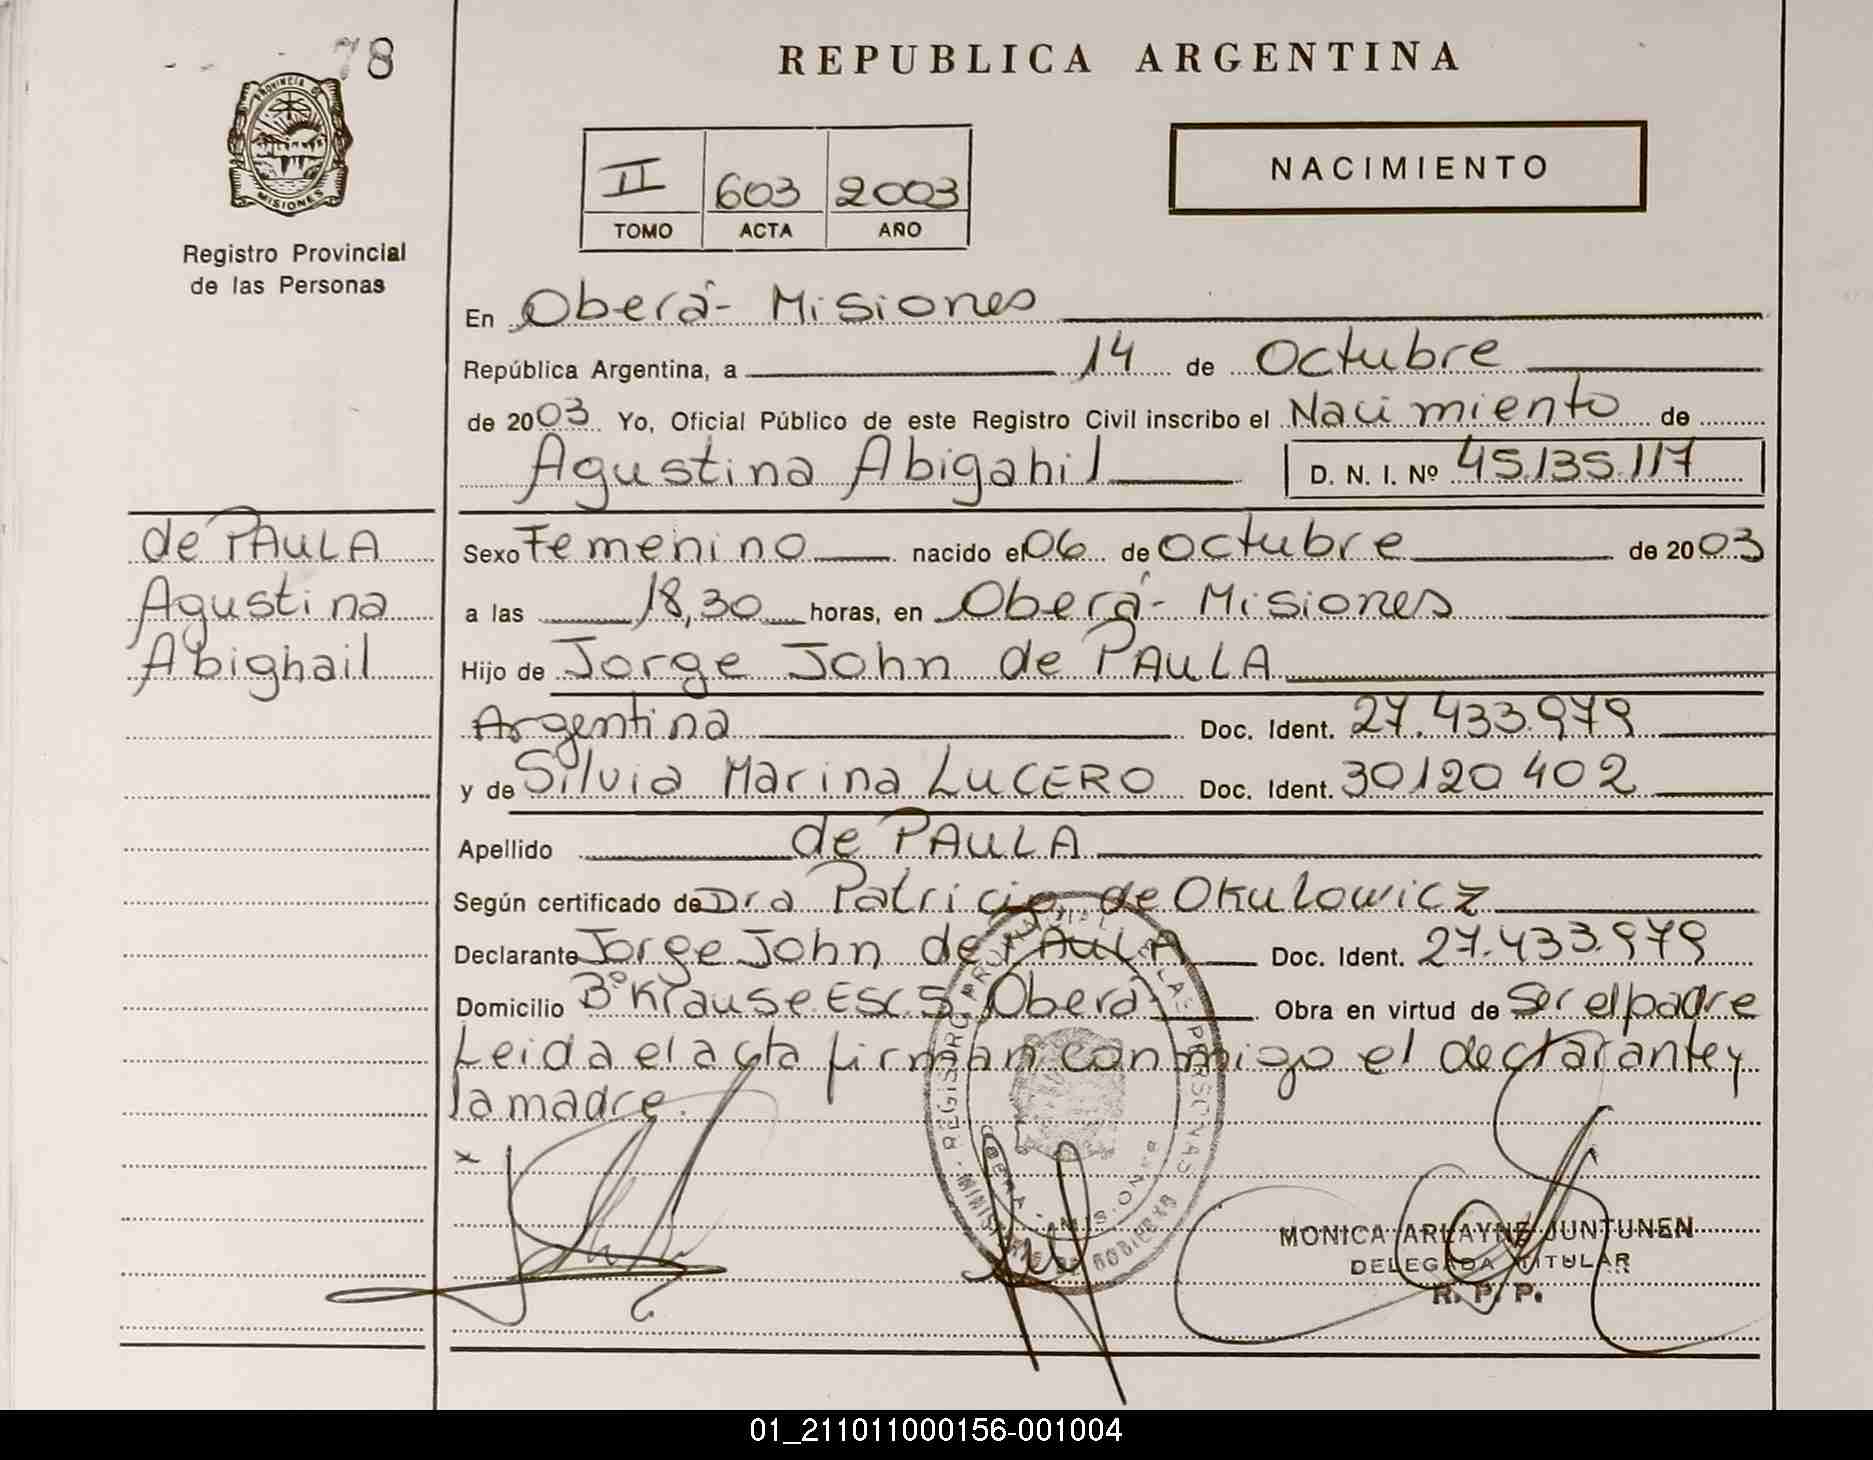 78
REPUBLICA ARGENTINA
PROVINCIA DE
MISIONES
Registro Provincial
de las Personas
II 603 2003
TOMO ACTA AÑO
NACIMIENTO
En Oberá- Misiones
República Argentina, a 14 de Octubre
de 2003 Yo, Oficial Público de este Registro Civil inscribo el Nacimiento de
Agustina Abigahil D. N. I. Nº 45.135.117
de PAULA
Agustina
Abighail
Sexo Femenino nacido el 06 de octubre de 2003
a las 18,30 horas, en Oberá- Misiones
Hijo de Jorge John de PAULA
Argentina Doc. Ident. 27.433.979
y de Silvia Marina LUCERO Doc. Ident. 30120402
Apellido de PAULA
Según certificado de Dra Patricia de Okulowicz
Declarante Jorge John de PAULA Doc. Ident. 27.433.979
Domicilio Bº Krause Esc 5 Oberá- Obra en virtud de Ser el padre
Leida el acta firman conmigo el declarante y
la madre.
REGISTRO PROVINCIAL DE LAS PERSONAS
MINISTERIO DE GOBIERNO
OBERA - MISIONES
MONICA ARLAYNE JUNTUNEN
DELEGADA TITULAR
R. P. P.
01_211011000156-001004